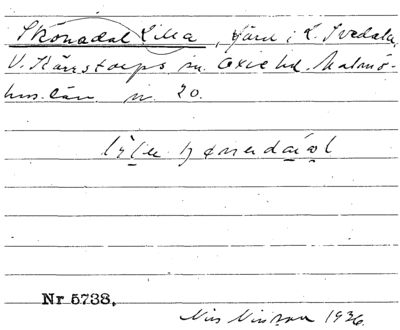 Skönadal Lilla, gård i L. Svedala,
V. Kärrstorps sn. Oxie hd. Malmö-
hus län n. 20.
Nr 5738.
Nils Nilsson 1936.